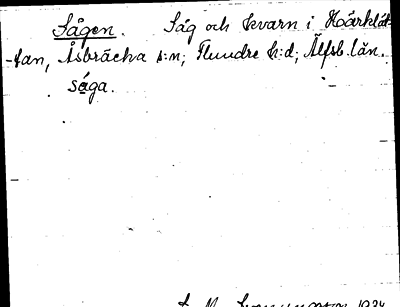 Sågen. Såg och kvarn i Härklät-
-tan, Åsbräcka s:n; Flundre h:d; Älfsb. län.
såga.
1934